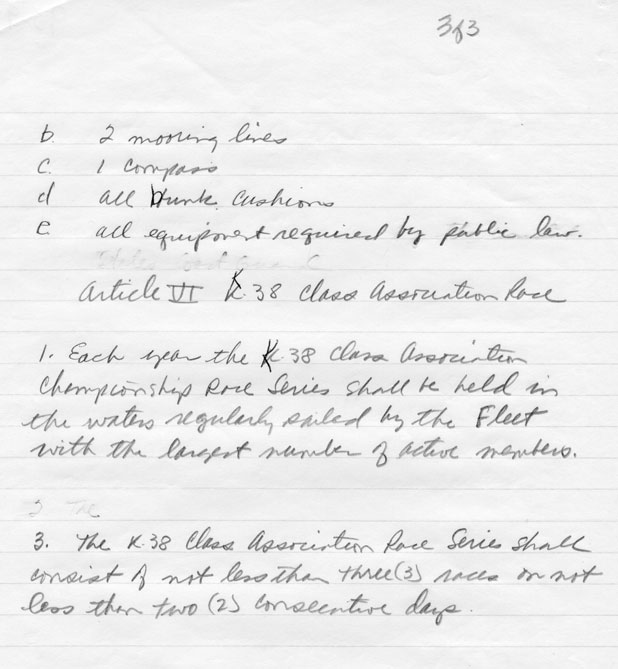 3 of 3
b. 2 mooring lines
c. 1 compass
d all bunk cushions
e. all equipment required by public law.
Article VI K-38 Class Association Race
1. Each year the K-38 Class Association
Championship Race Series shall be held in
the waters regularly sailed by the Fleet
with the largest number of active members.
3 The
3. The K-38 Class Association Race Series shall
consist of not less than three (3) races on not
less than two (2) consecutive days.